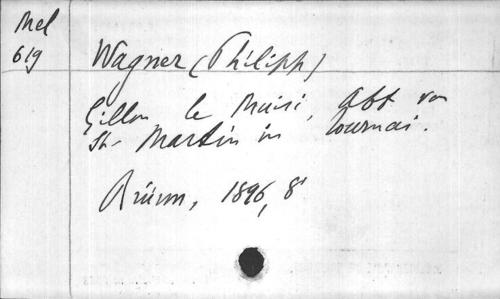 Mel
619
Wagner (Philipp)
Gillon le Muisi, Abt von
St. Martin in Tournai.
Brünn, 1896, 8°